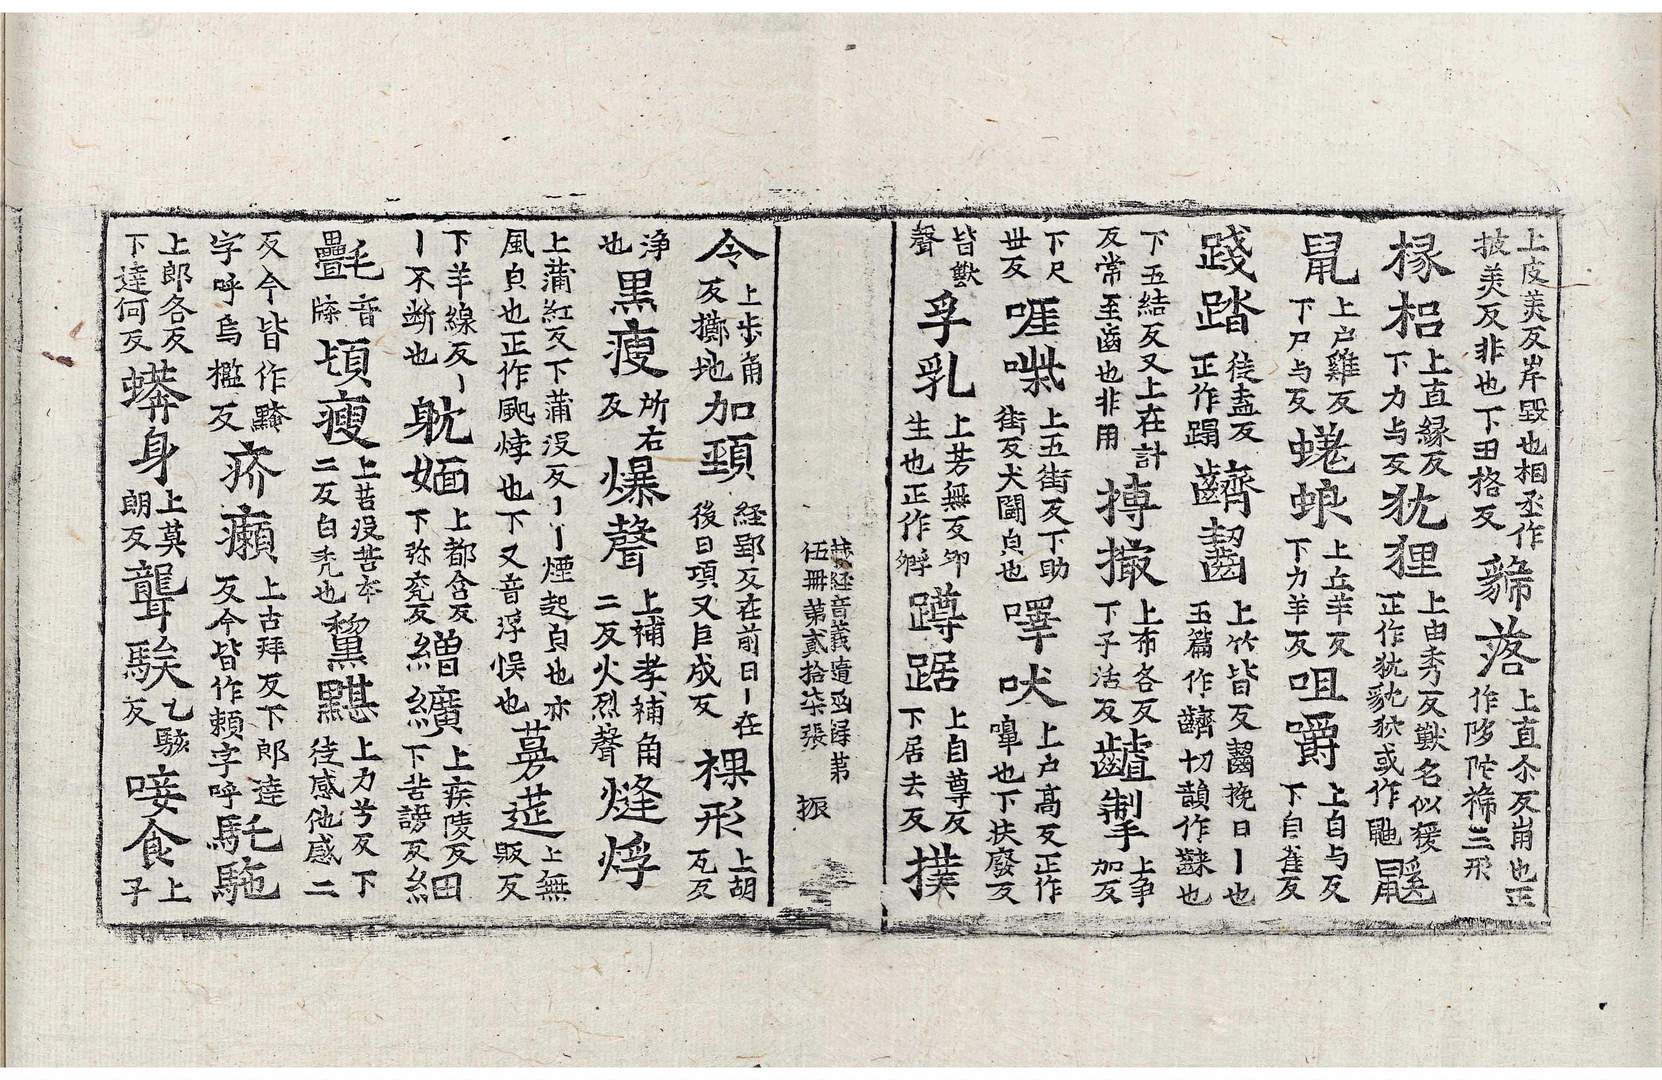 上皮美反岸毀也相丞作披美反非也下田格反𧳟落上直尒反崩也正作陊陁褫三形
椽梠上直緣反下力与反犹狸上由秀反獸名似猨正作狖貁狖或作䶆鼷
鼠上户雞反下尸与反蜣蜋上丘羊反下力羊反咀嚼上自与反下自雀反
踐踏徒盍反正作蹋齎齧上竹皆反齧挽曰丨也玉篇作齌切韻作齼也
下五結反又上在計反常至齒也非用搏撮上布各反下子活反齇掣上爭加反
下尺世反啀喍上五街反下助街反犬鬪皃也嘷吠上户高反正作嘷也下扶廢反
皆獸聲孚乳上芳無反卵生也正作孵蹲踞上自尊反下居去反撲
藏經音義隨函録第伍冊第貳拾柒張 振
令上步角反擲地加頸經郢反在前曰丨在後曰項又巨成反裸形上胡瓦反
淨也黑瘦所右反爆聲上補孝補角二反火烈聲熢烰
上蒲紅反下蒲没反丨丨煙起皃也亦風皃也正作颩㶿也下又音浮悮也蒡莚上無販反
下羊線反丨丨不断也躭婳上都含反下弥兖反繒纊上疾陵反下苦謗反細
㲲音牒頝瘦上苦没苦本二反白秃也黧黮上力兮反下徒感他感二
反今皆作黤字呼烏檻反疥癩上古拜反下郎達反今皆作頼字呼馲駞
上郎各反下達何反蟒身上莫朗反聾騃乙駭反唼食上子